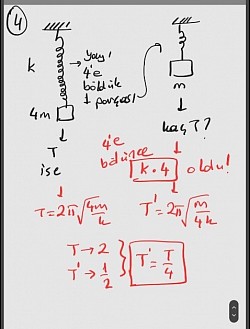 4
k
yayı
4'e
böldük
1 parçası
4m
m
T
ise
kaç T?
4'e
bölünce
k.4 oldu!
T=2π√4m/k
T'=2π√m/4k
T→2
T'→1/2
T'=T/4